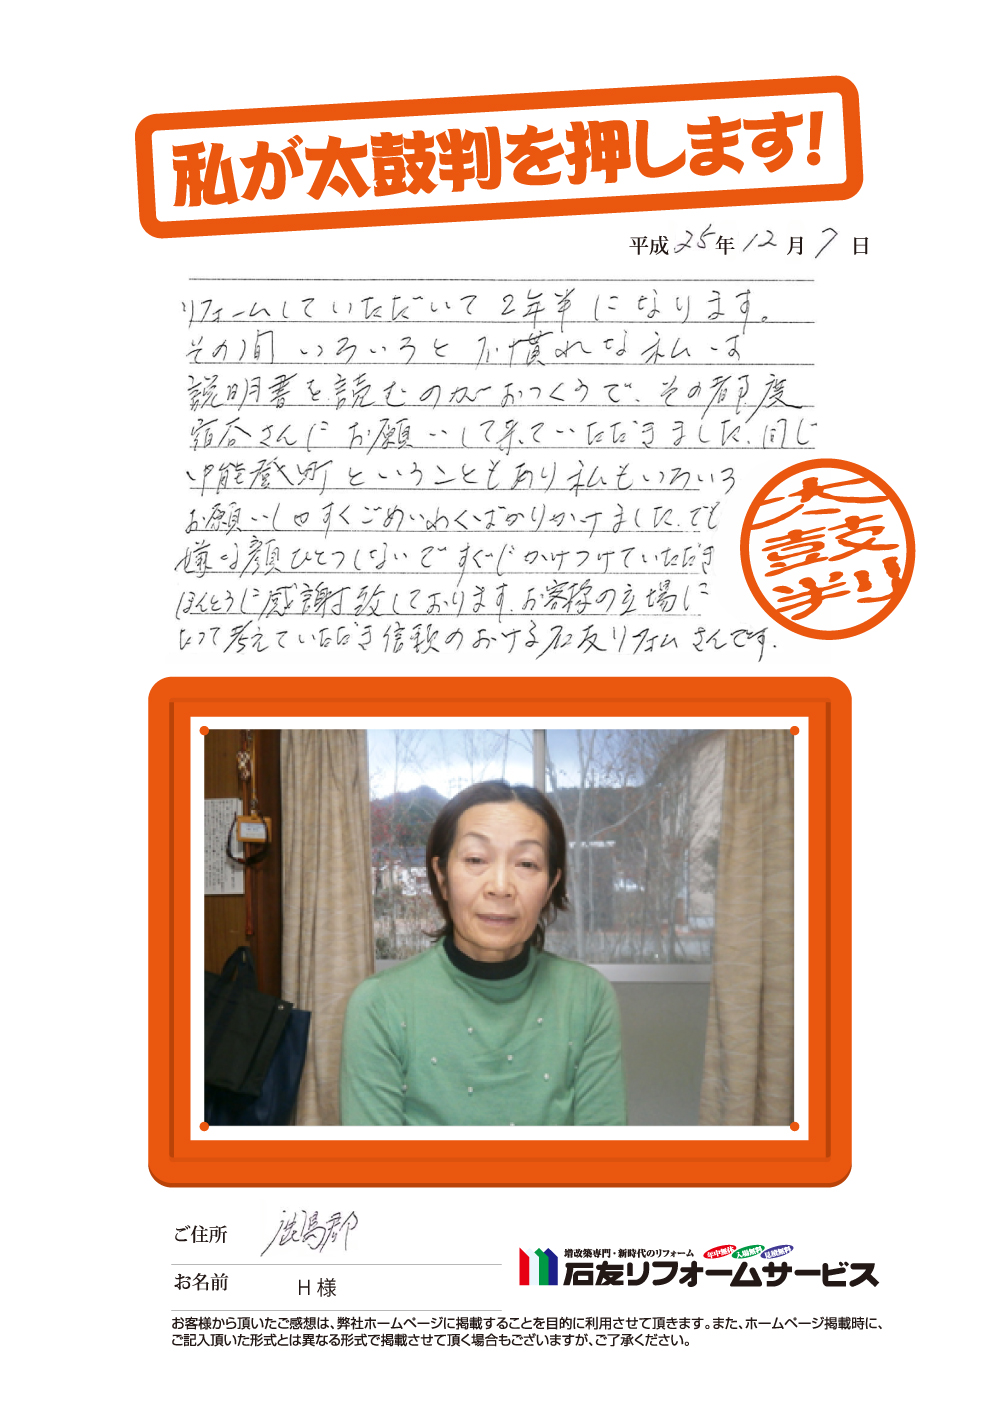 私が太鼓判を押します!
平成25年12月7日
リフォームしていただいて2年半になります。
その間いろいろと不慣れな私は
説明書を読むのがおっくうで、その都度
宿谷さんにお願いして来ていただきました、同じ
中能登町ということもあり私もいろいろ
お願いしやすくごめいわくばかりかけました、でも
嫌な顔ひとつしないですぐにかけつけていただき
ほんとうに感謝致しております、お客様の立場に
たって考えていただき信頼のおける石友リフォームさんです。
太鼓判
ご住所 鹿島郡
増改築専門・新時代のリフォーム 年中無休 入場無料 見積無料
石友リフォームサービス
お名前 H様
お客様から頂いたご感想は、弊社ホームページに掲載することを目的に利用させて頂きます。また、ホームページ掲載時に、
ご記入頂いた形式とは異なる形式で掲載させて頂く場合もございますが、ご了承ください。